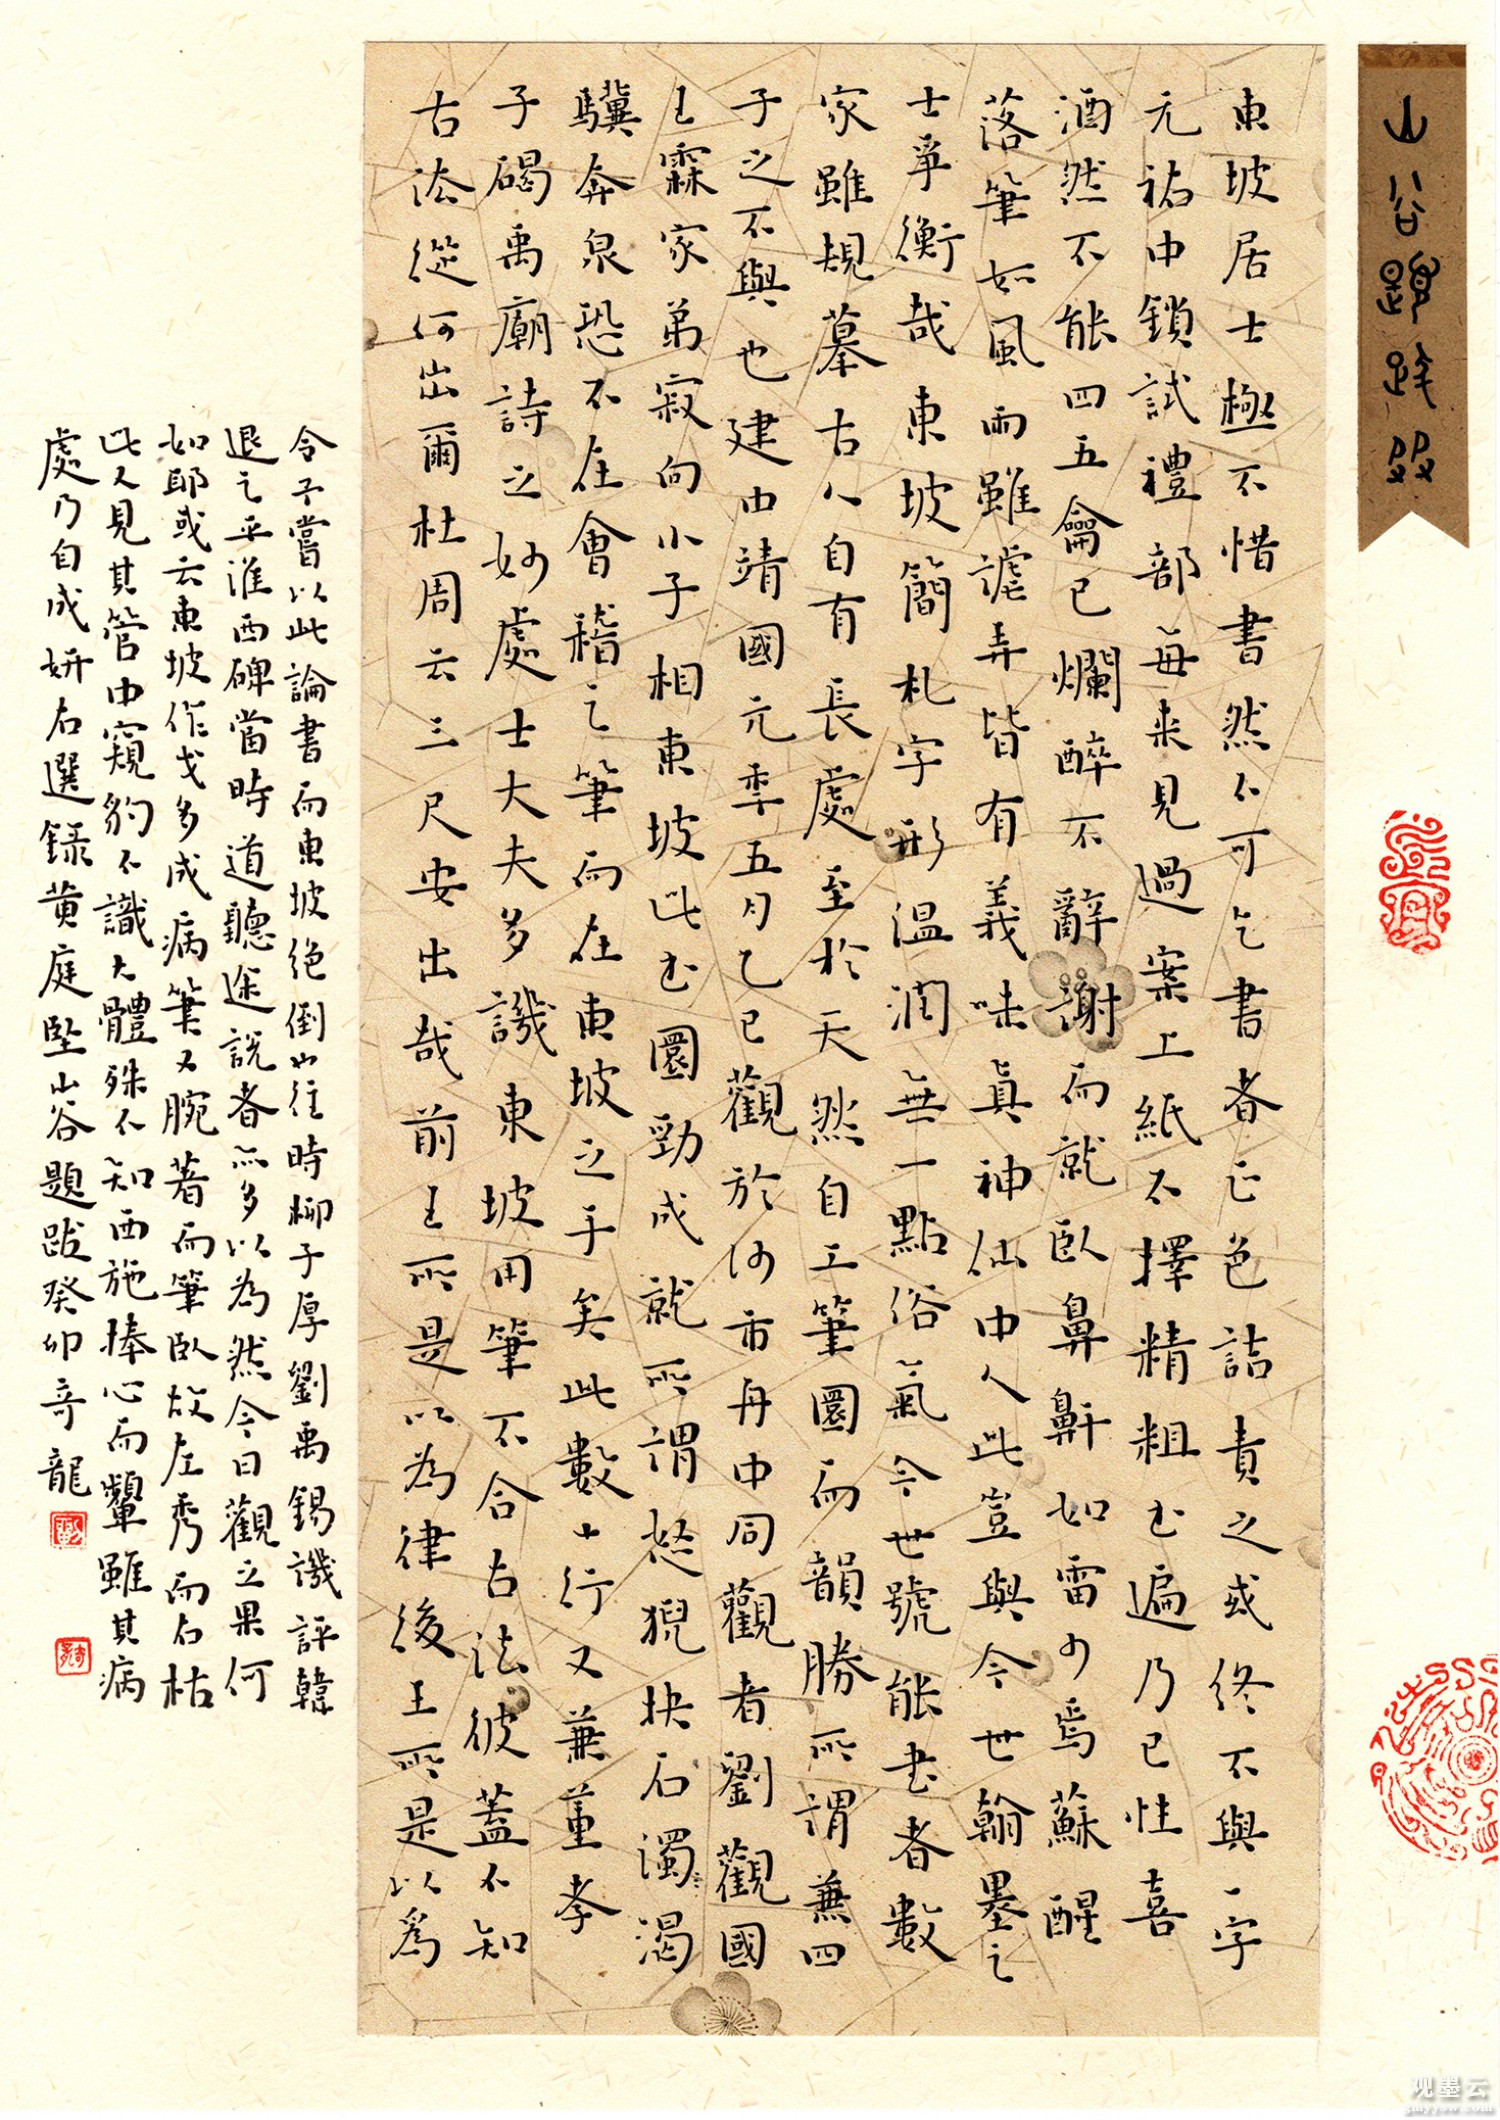 山谷題跋
東坡居士極不惜書然不可乞書者正色詰責之或終不與一字
元祐中鎖試禮部每来見過案上紙不擇精粗書遍乃已性喜
酒然不能四五龠已爛醉不辭謝而就臥鼻鼾如雷少焉蘇醒
落筆如風雨雖謔弄皆有義味真神仙中人此豈與今世翰墨之
士爭衡哉東坡簡札字形温潤無一點俗氣今世號能書者數
家雖規摹古人自有長處至於天然自工筆圓而韻勝所謂兼四
子之不與也建中靖國元季五月乙巳觀於沙市舟中同觀者劉觀國
王霖家弟寂向小子相東坡此書圜勁成就所謂怒猊抉石渴
驥奔泉恐不在會稽之筆而在東坡之手矣此數十行又兼董孝
子碣禹廟詩之妙處士大夫多譏東坡用筆不合古法彼蓋不知
古法從何出爾杜周云三尺安出哉前王所是以為律後王所是以為
令予嘗以此論書而東坡絶倒也往時柳子厚劉禹錫譏評韓
退之平淮西碑當時道聽途説者亦多以為然今日觀之果何
如耶或云東坡作戈多成病筆又腕著而筆臥故左秀而右枯
此又見其管中窺豹不識大體殊不知西施捧心而顰雖其病
處乃自成妍右選録黄庭堅山谷題跋癸卯奇龍
观墨云